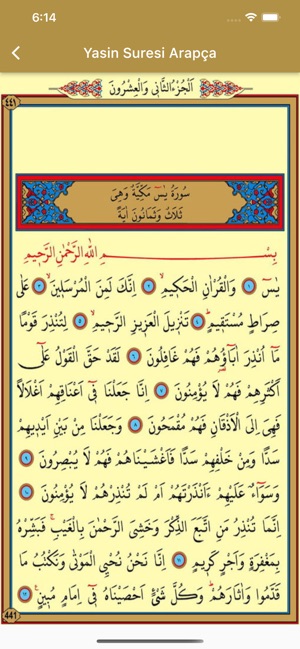 6:14
Yasin Suresi Arapça
اَلْجُزْءُ الثَّانِي وَالْعِشْرُونَ
٤٤١
سُورَةُ يٰسٓ مَكِّيَّةٌ وَهِيَ
ثَلَاثٌ وَثَمَانُونَ اٰيَةً
بِسْمِ اللّٰهِ الرَّحْمٰنِ الرَّحٖيمِ
يٰسٓ ﴿١﴾ وَالْقُرْاٰنِ الْحَكٖيمِۙ ﴿٢﴾ اِنَّكَ لَمِنَ الْمُرْسَلٖينَۙ ﴿٣﴾ عَلٰى
صِرَاطٍ مُسْتَقٖيمٍۜ ﴿٤﴾ تَنْزٖيلَ الْعَزٖيزِ الرَّحٖيمِۙ ﴿٥﴾ لِتُنْذِرَ قَوْمًا
مَٓا اُنْذِرَ اٰبَٓاؤُ۬هُمْ فَهُمْ غَافِلُونَ ﴿٦﴾ لَقَدْ حَقَّ الْقَوْلُ عَلٰٓى
اَكْثَرِهِمْ فَهُمْ لَا يُؤْمِنُونَ ﴿٧﴾ اِنَّا جَعَلْنَا فٖٓي اَعْنَاقِهِمْ اَغْلَالًا
فَهِيَ اِلَى الْاَذْقَانِ فَهُمْ مُقْمَحُونَ ﴿٨﴾ وَجَعَلْنَا مِنْ بَيْنِ اَيْدٖيهِمْ
سَدًّا وَمِنْ خَلْفِهِمْ سَدًّا فَاَغْشَيْنَاهُمْ فَهُمْ لَا يُبْصِرُونَ ﴿٩﴾
وَسَوَٓاءٌ عَلَيْهِمْ ءَاَنْذَرْتَهُمْ اَمْ لَمْ تُنْذِرْهُمْ لَا يُؤْمِنُونَ ﴿١٠﴾
اِنَّمَا تُنْذِرُ مَنِ اتَّبَعَ الذِّكْرَ وَخَشِيَ الرَّحْمٰنَ بِالْغَيْبِۚ فَبَشِّرْهُ
بِمَغْفِرَةٍ وَاَجْرٍ كَرٖيمٍ ﴿١١﴾ اِنَّا نَحْنُ نُحْيِ الْمَوْتٰى وَنَكْتُبُ مَا
قَدَّمُوا وَاٰثَارَهُمْۜ وَكُلَّ شَيْءٍ اَحْصَيْنَاهُ فٖٓي اِمَامٍ مُبٖينٍ۟ ﴿١٢﴾
441